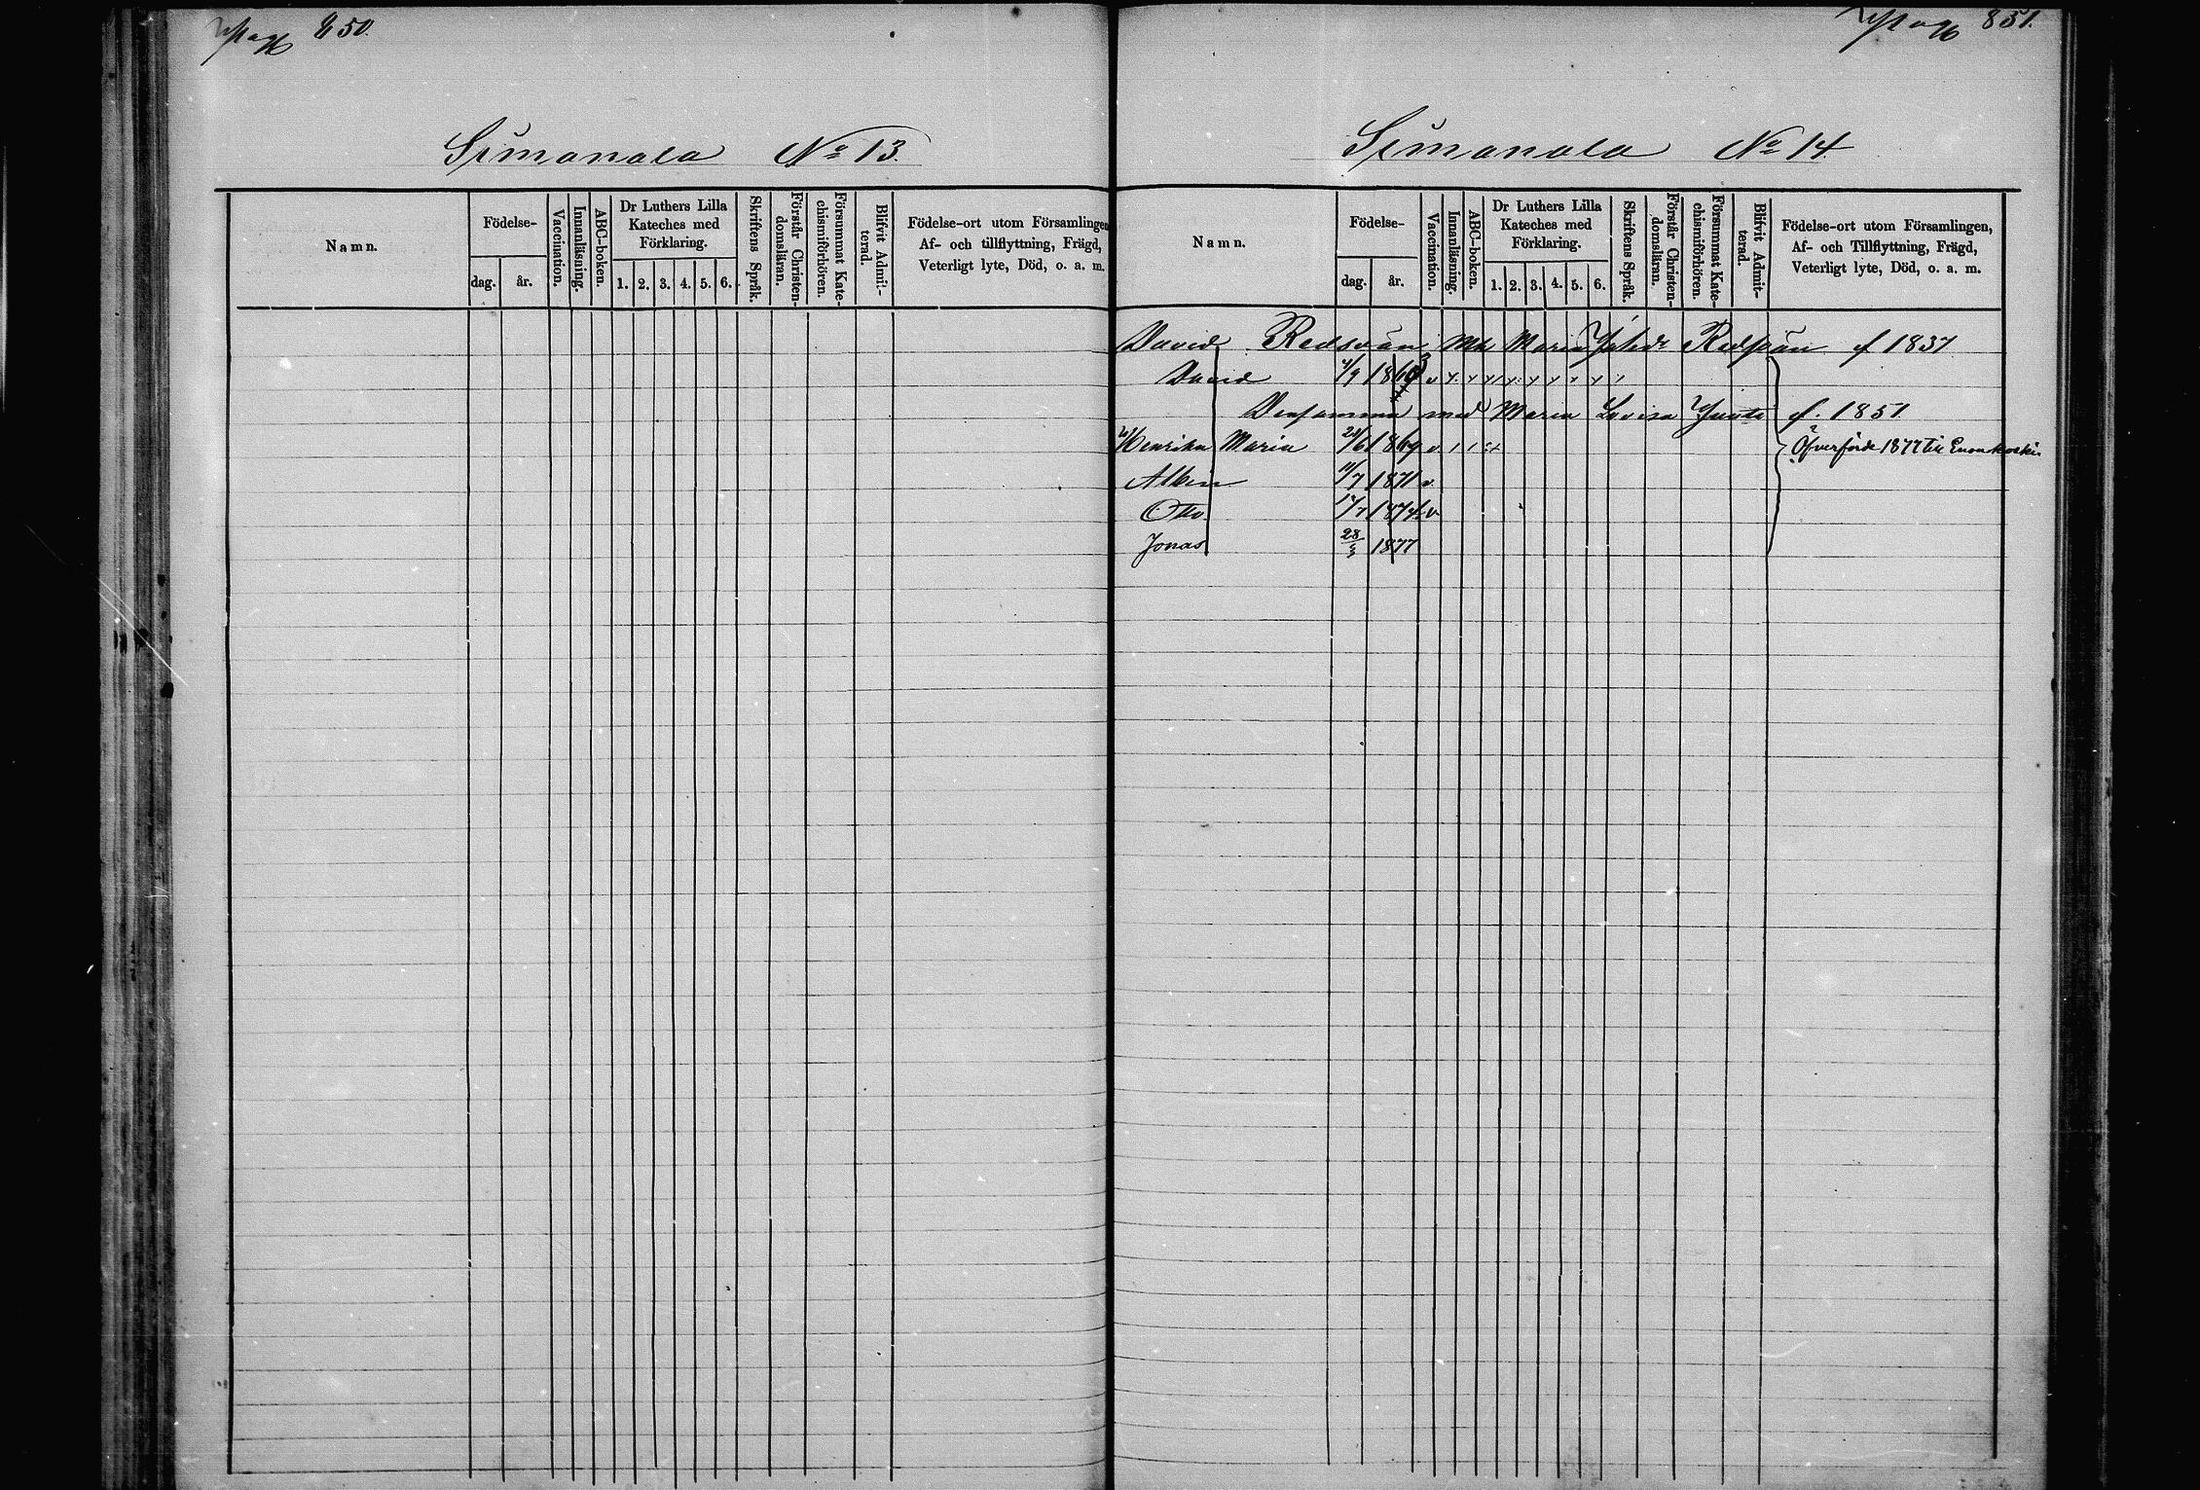 850.
Simanala No 13.
Namn.
Födelse-
dag.
år.
Vaccination.
Innanläsning.
ABC-boken.
Dr Luthers Lilla
Kateches med
Förklaring.
1. 2. 3. 4. 5. 6.
Skriftens Språk.
Förstår Christen-
domsläran.
Försummat Kate-
chismiförhören.
Blifvit Admit-
terad.
Födelse-ort utom Församlingen
Af- och tillflyttning, Frägd,
Veterligt lyte, Död, o. a. m.
851.
Simanala No 14.
Namn.
Födelse-
dag.
år.
Vaccination.
Innanläsning.
ABC-boken.
Dr Luthers Lilla
Kateches med
Förklaring.
1. 2. 3. 4. 5. 6.
Skriftens Språk.
Förstår Christen-
domsläran.
Försummat Kate-
chismiförhören.
Blifvit Admit-
terad.
Födelse-ort utom Församlingen,
Af- och Tillflyttning, Frägd,
Veterligt lyte, Död, o. a. m.
David Redsvän Maria f 1837
David
med Maria Lovisa f. 1851
Henrika Maria 1869 v Öfverförde 1877 till Enonkoski
Albin 1871 v
Otto. 1874 v
Jonas 28 1877